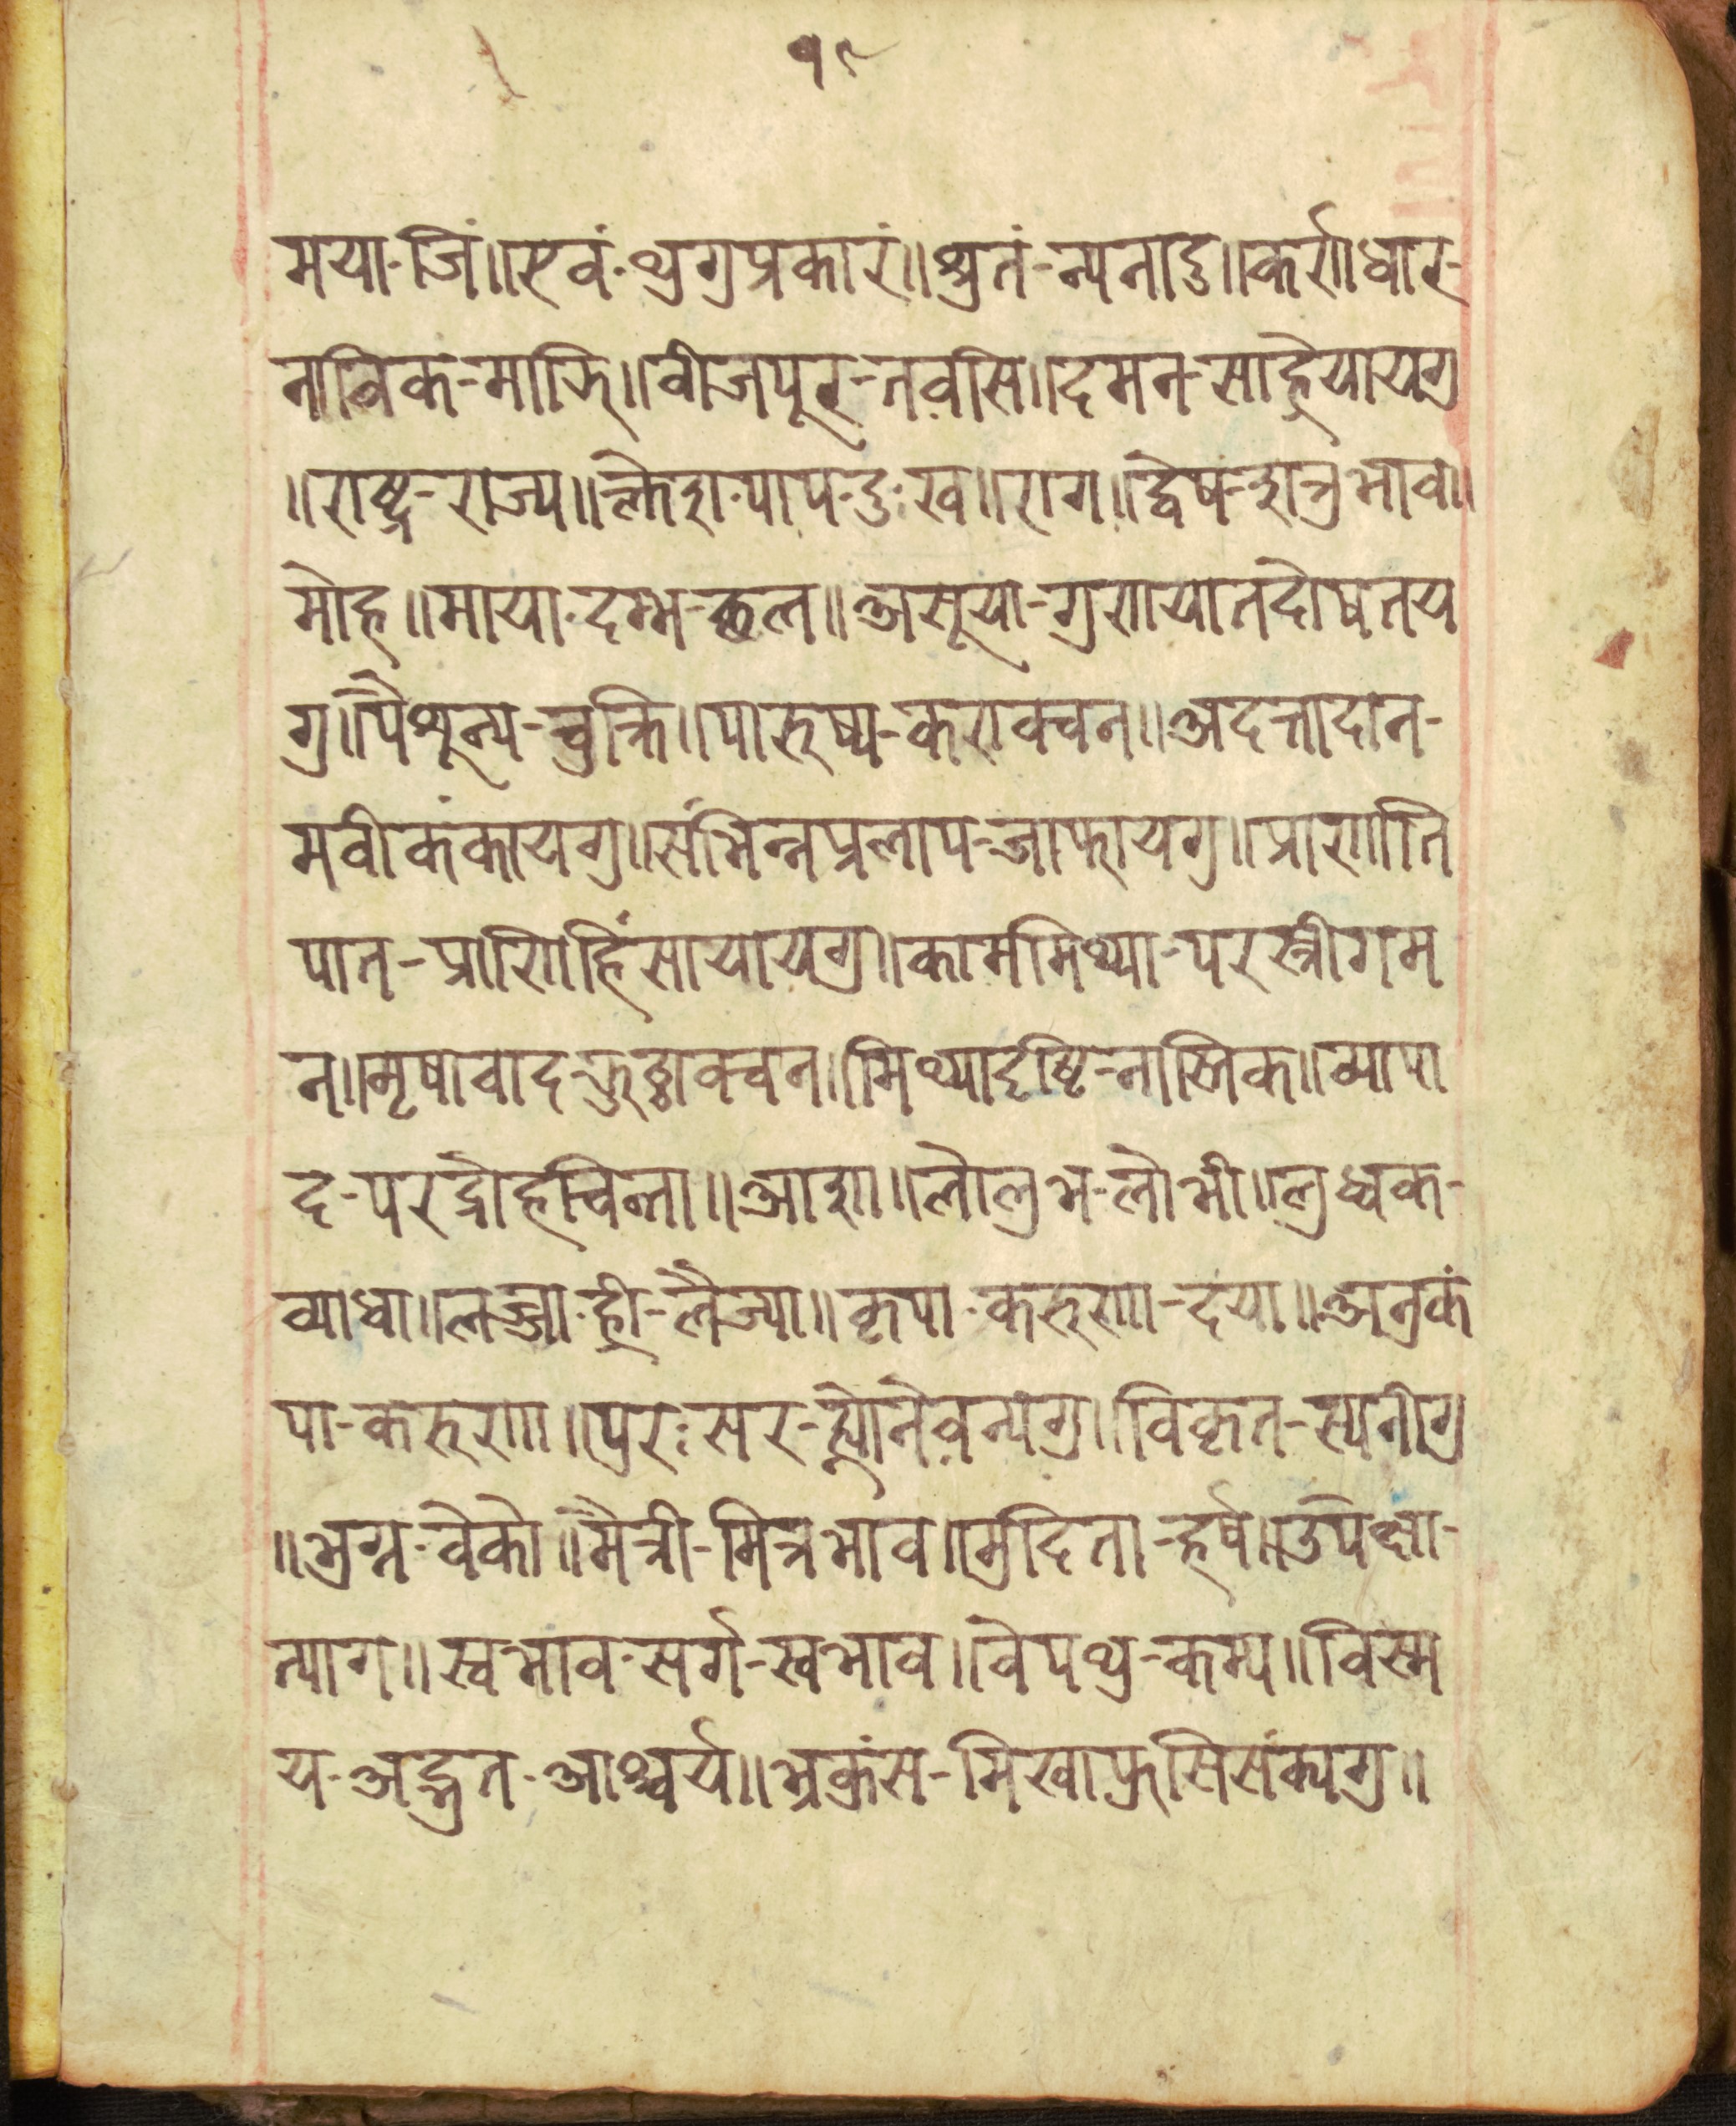 १९
मया-जिं॥एवं-थुगुप्रकारं॥श्रुतं-न्यनादु॥कर्णधार-
नाविक-माझि॥वीजपूर-तवसि॥दमन-साह्रेयायगु
॥राष्ट्र-राज्य॥क्लेश-पाप-दुःख॥राग॥द्वेष-शत्रुभाव॥
मोह॥माया-दम्भ-छल॥असूया-गुणयातदोषतय
गु॥पैशून्य-चुक्लि॥पारुष्य-कराक्वचन॥अदत्तादान-
मवीकंकायगु॥संभिन्नप्रलाप-ज्वाफायगु॥प्राणाति
पात-प्राणिहिंसायायगु॥काममिथ्या-परस्त्रीगम
न॥मृषावाद-झुठ्ठाक्वचन॥मिथ्यादृष्टि-नास्तिक॥व्यापा
द-परद्रोहचिन्ता॥आशा॥लोलुभ-लोभी॥लुध्वक-
व्याधा॥लज्जा-ह्री-लैज्या॥कृपा-करुणा-दया॥अनुकं
पा-करुणा॥पुरःसर-ह्योनेवन्यगु॥विकृत-स्यनीगु
॥भुग्न-वेको॥मैत्री-मित्रभाव॥मुदिता-हर्ष॥उपेक्षा-
त्याग॥स्वभाव-सर्ग-स्वभाव॥वेपथु-कम्प॥विस्म
य-अद्भुत-आश्चर्य॥भ्रकुंस-मिखाफुसिसंक्यगु॥